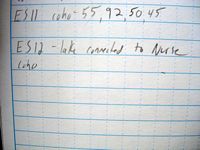 ES11 coho - 55, 92, 50, 45
ES12 - lake connected to Nurse
coho